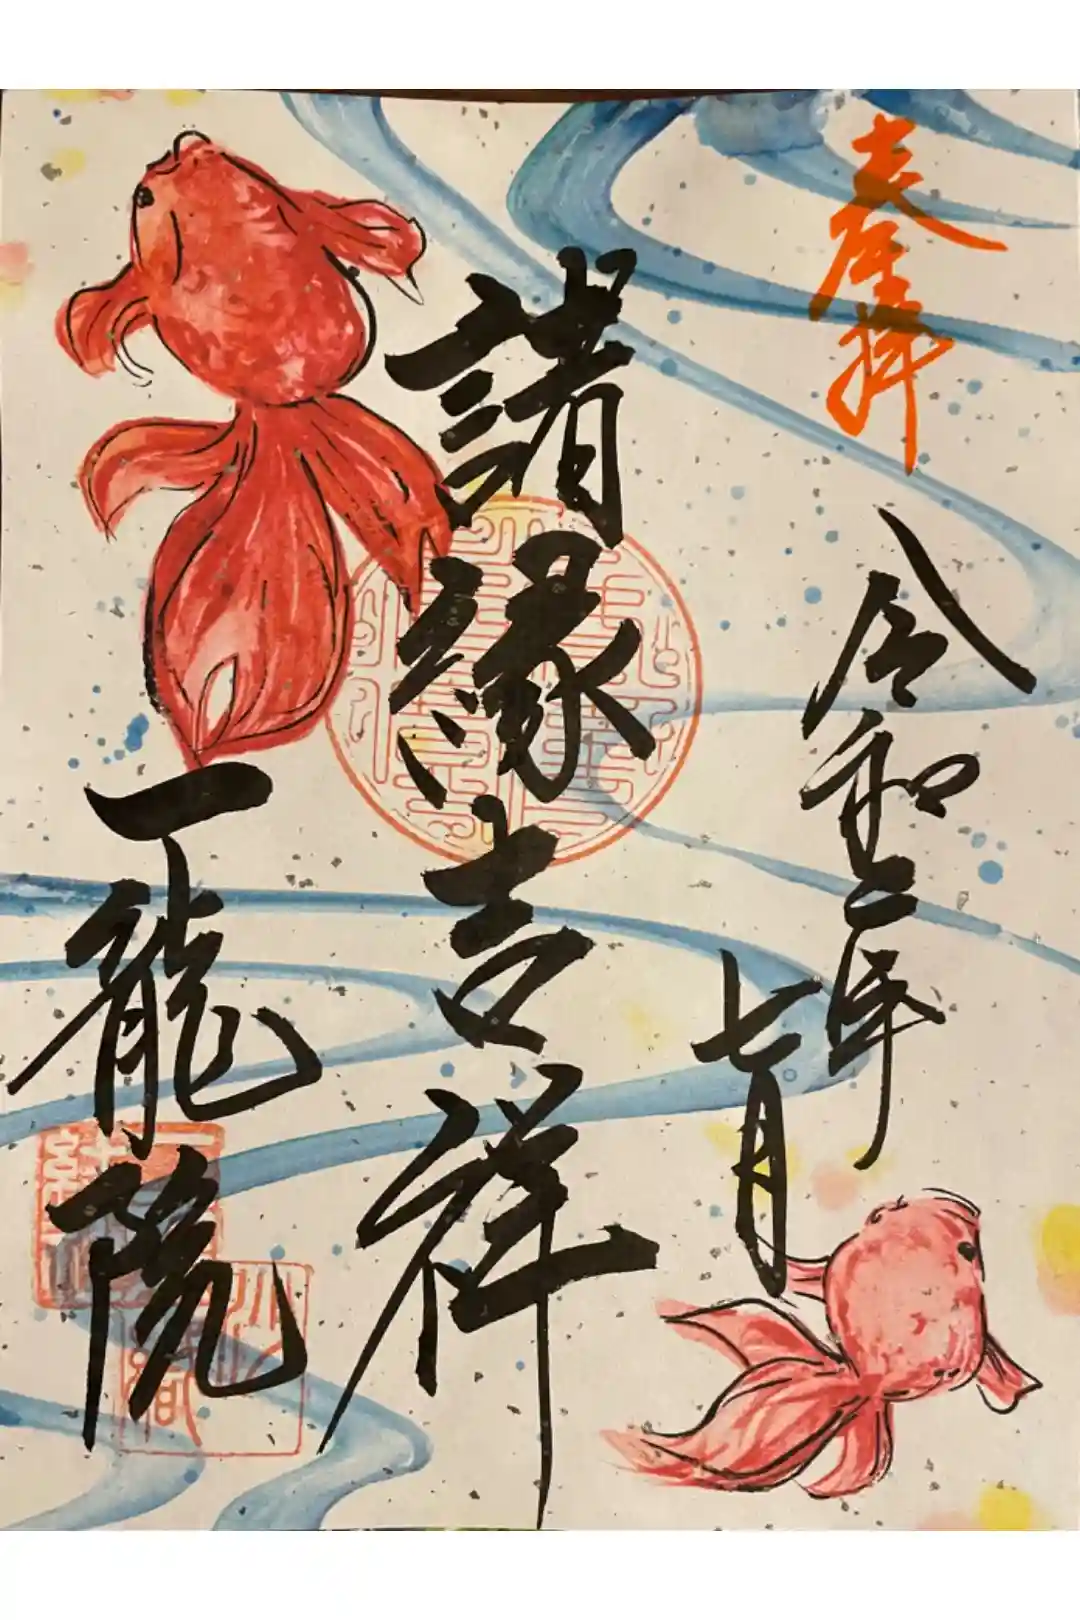 令和二年
七月
諸縁吉祥
一龍院